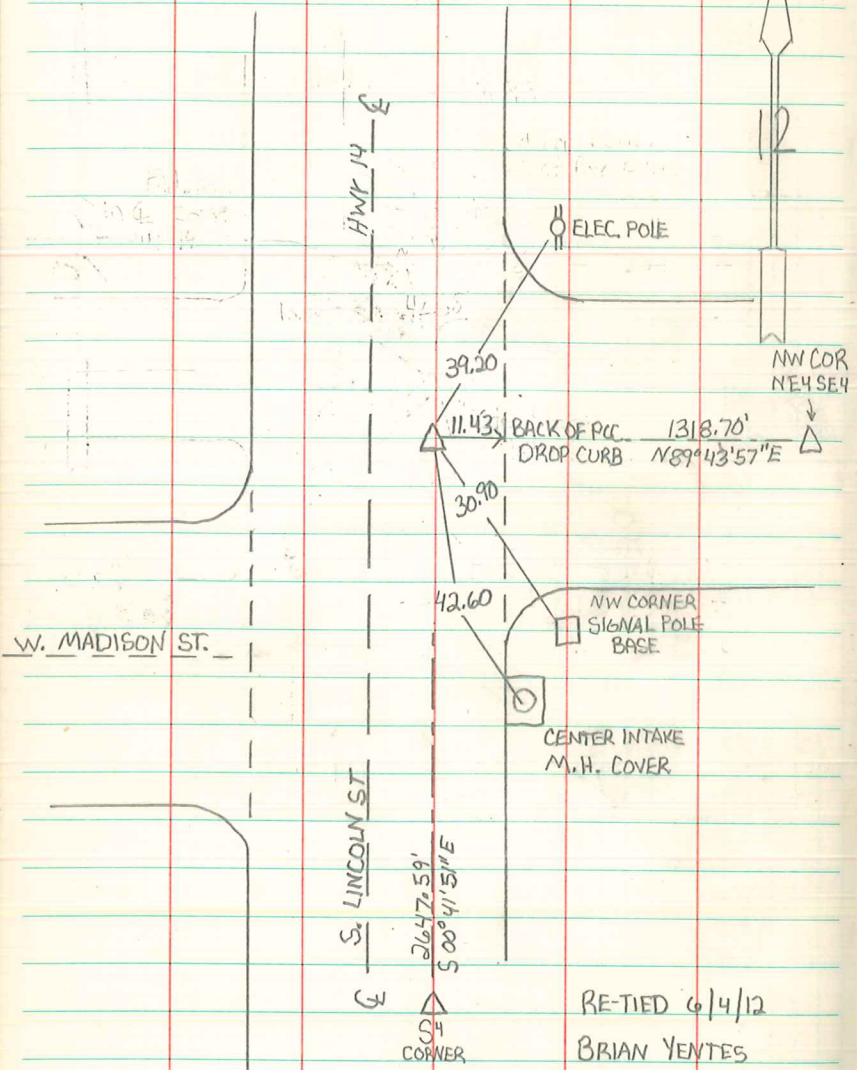 HWY 14
12
ELEC. POLE
39.20
NW COR
NE4 SE4
11.43
BACK OF PCC
DROP CURB
1318.70'
N89°43'57"E
30.90
42.60
NW CORNER
SIGNAL POLE
BASE
W. MADISON ST.
CENTER INTAKE
M.H. COVER
S. LINCOLN ST
2647.59'
S 00°41'51"E
S4
CORNER
RE-TIED 6/4/12
BRIAN YENTES